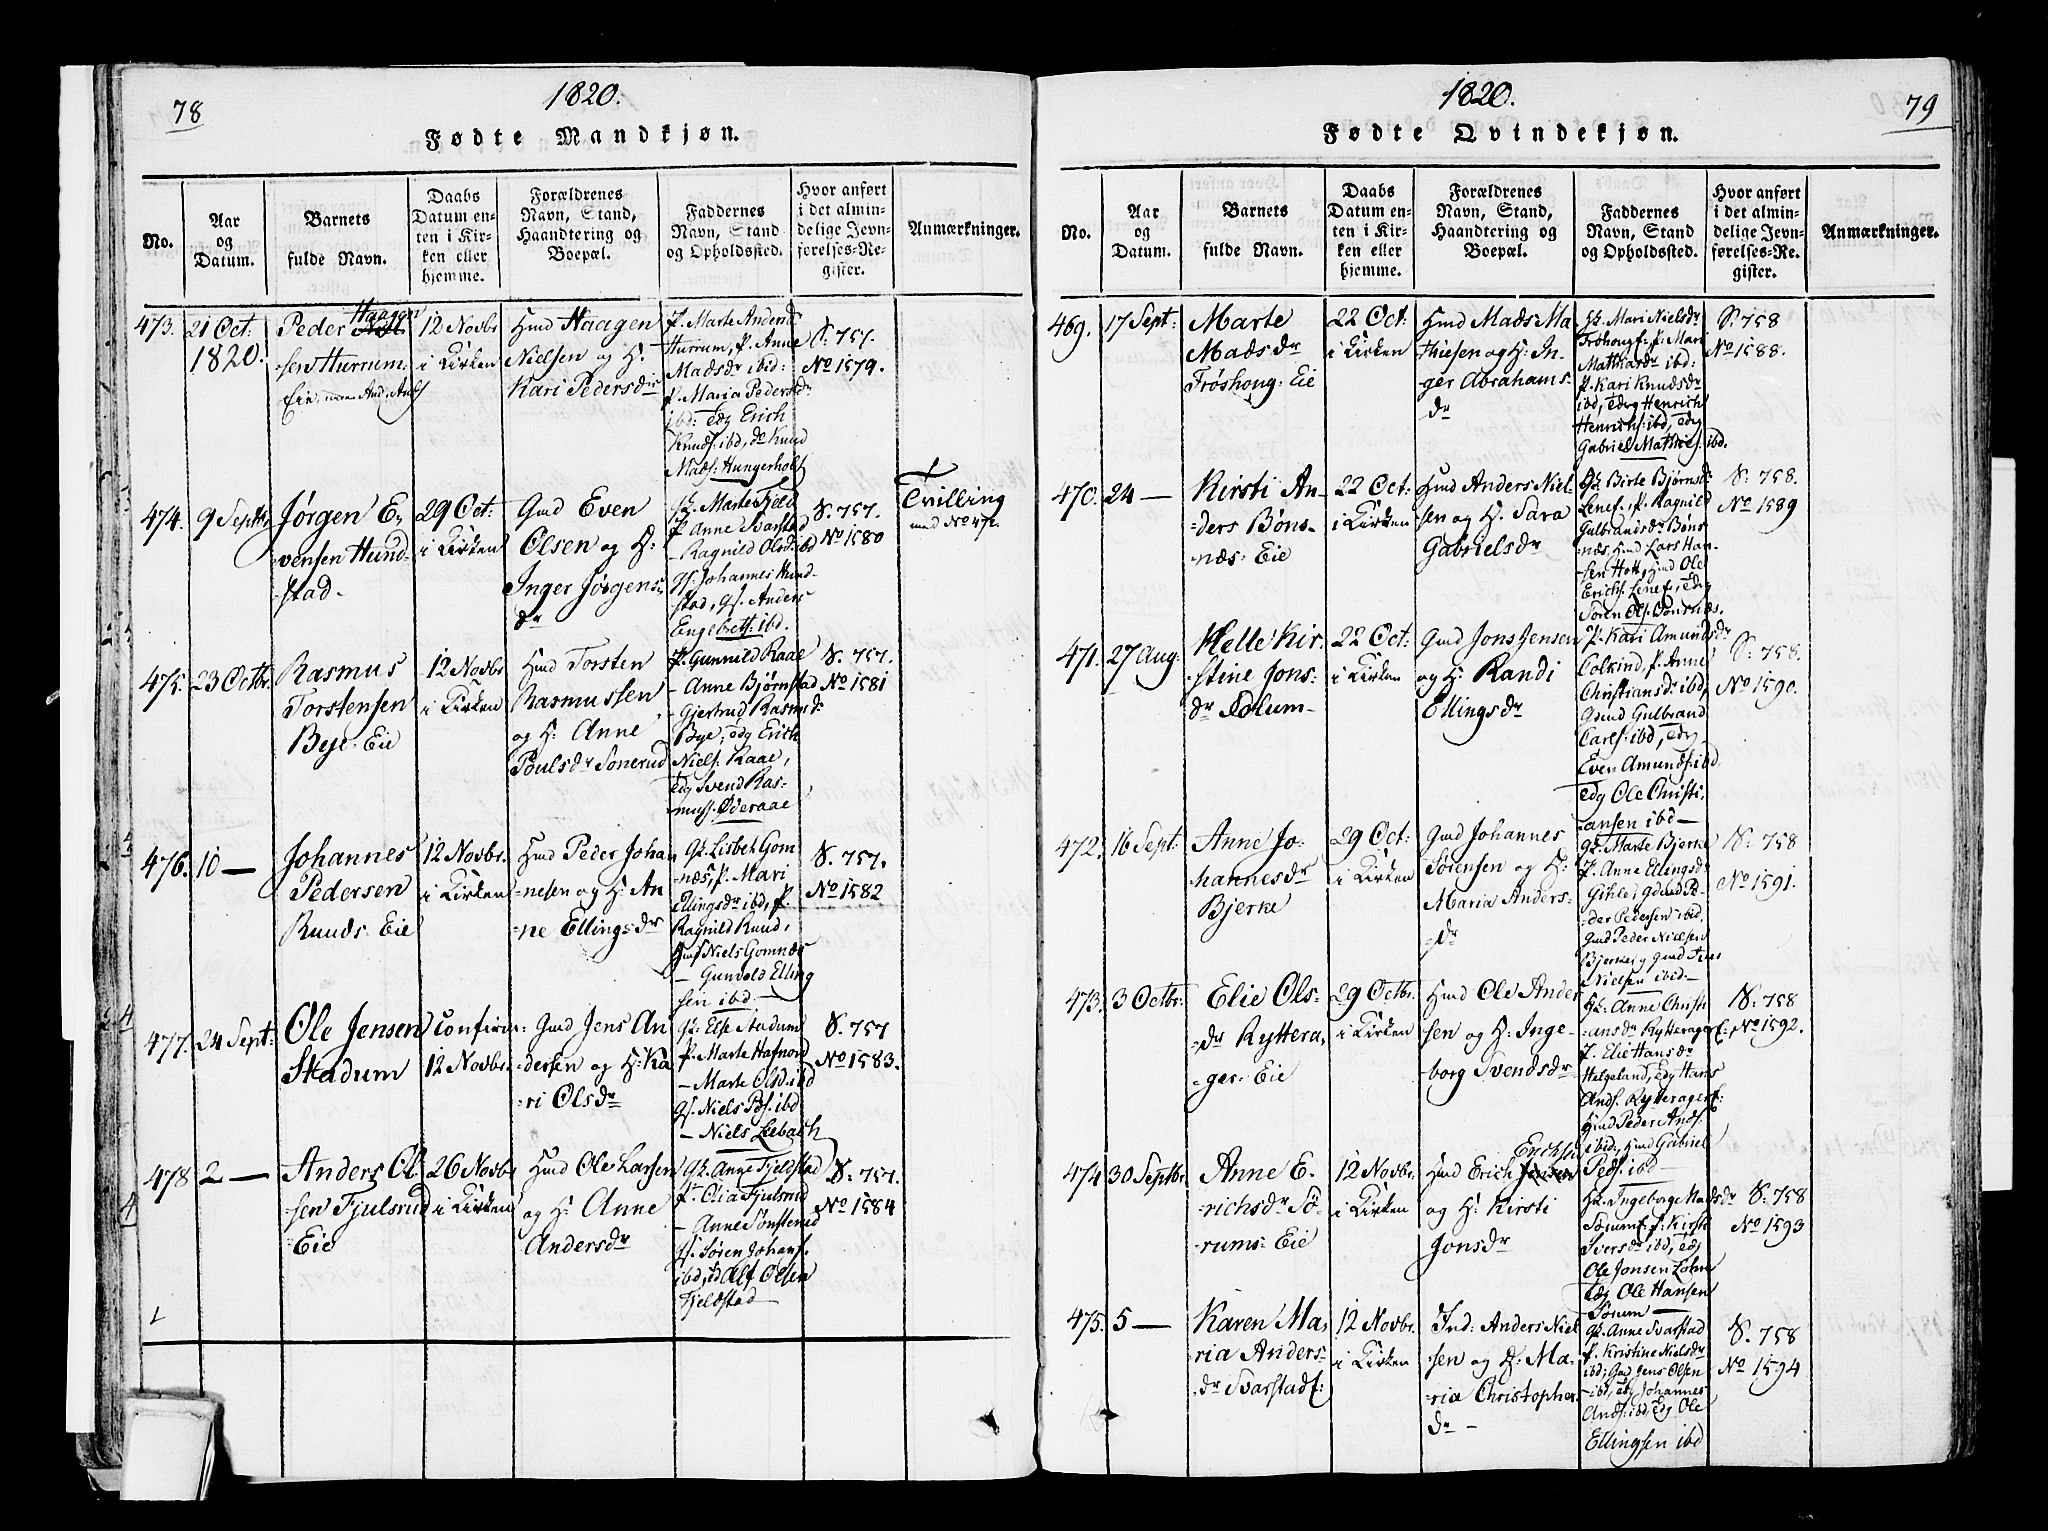 78
1820.
Fødte Mandkjøn.
No.
Aar
og
Datum.
Barnets
fulde Navn.
Daabs
Datum en-
ten i Kir-
ken eller
hjemme.
Forældrenes
Navn, Stand,
Haandtering og
Boepæl.
Faddernes
Navn, Stand
og Opholdssted.
Hvor anført
i det almin-
delige Jevn-
førelses-Re-
gister.
Anmærkninger.
473.
21 Oct:
1820.
Peder Haagen
sen Hurrum.
Eie
12 Novbr
i Kirken
Hmd Haagen
Nielsen og H:
Kari Pedersdr
P. Marte Andersd
Hurrum, P. Anne
Madsdr ibid:
P. Maria Pedersdr
ibd: Edy Erich
Knuds: ibd, do Knud
Mads: Hungerholt
S. 757.
No 1579.
474.
9 Septbr
Jørgen E-
vensen Hund-
stad.
29 Oct:
i Kirken
Gmd Even
Olsen og H:
Inger Jørgens-
dr
Gk. Marte Fjeld
P. Anne Svarstad
- Ragnild Olsd: ibd
Gf. Johannes Hund-
stad, Gf. Anders
Engebrets: ibd.
S. 757.
No 1580
Tvilling
med No 472.
475.
23 Octbr.
Rasmus
Torstensen
Bye-Eie
12 Novbr
i Kirken
Hmd Torsten
Rasmussen
og H: Anne
Poulsdr Sönerud
P. Gunnild Raae
- Anne Bjørnstad
- Gjertrud Rasmusd:
Bye, edy Erich
Niels: Raae,
Edy Svend Ras-
muss: Øderaae
S. 757.
No 1581
476.
10 —
Johannes
Pedersen
Ruuds: Eie
12 Novbr.
i Kirken
Hmd Peder Johan
-nesen og H: An
-ne Ellingsdr
Gk. Lisbet Gom
-næs, P. Mari
Ellingsdr ibd, P.
Ragnild Ruud,
Hmd Niels Gomnæs
— Gunvold Elling
sen ibd —
S. 757.
No 1582
477.
24 Sept:
Ole Jensen
Stadum
Confirm:
12 Novbr.
Gmd Jens An
-dersen og H: Ka
-ri Olsdr
Gk: Else Stadum
P. Marte Hafnord
— Marte Olsd: ibd
Gf. Niels Ps. ibd
— Niels Leebach
S. 757
No 1583.
478
2 —
Anders Ol
sen Fjulsrud
Eie
26 Novbr
i Kirken
Hmd Ole Larsen
og H: Anne
Andersdr
Gk. Anne Fjeldstad
P. Olia Fjulsrud
— Anne Sönsterud
Gf. Sören Johans.
ibd, Alf Olsen
Fjeldstad —
S. 757.
No 1584
1820.
79
Fødte Qvindekjøn.
No.
Aar
og
Datum.
Barnets
fulde Navn.
Daabs
Datum en-
ten i Kir-
ken eller
hjemme.
Forældrenes
Navn, Stand,
Haandtering og
Boepæl.
Faddernes
Navn, Stand
og Opholdssted.
Hvor anført
i det almin-
delige Jevn-
førelses-Re-
gister.
Anmærkninger.
469.
17 Sept:
Marte
Madsdr
Frøshoug: Eie
22 Oct:
i Kirken
Hmd Mads Ma
thiesen og H: In-
ger Abrahams-
dr
Gk. Mari Nielsdr
Frøhougf: P. Mari
Mathiasdr ibd:
P. Kari Knudsdr
ibd, Edy Henrich
Henrichs: ibd, Edy
Gabriel Mathies: ibd.
S: 758
No 1588.
470.
24 —
Kirsti An-
-ders Böns-
næs: Eie
22 Oct:
i Kirken
Hmd Anders Niel-
sen og H: Sara
Gabrielsdr
Gk. Birte Bjørnsd:
Lenef. P. Ragnild
Gulbrandsdr Böns
-næs, Hmd Lars Han-
-sen Hott, Hmd Ole
Erichs. Lenef., Edy
Sören Ols: Bönsnæs.
S: 758.
No 1589
471.
27 Aug:
Helle Kir-
-stine Jons-
dr Solum-
22 Oct:
i Kirken
Gmd Jons Jensen
og H: Randi
Ellingsdr
P. Kari Amundsdr
Colkind, P. Anne
Christiansdr ibd,
Gmd Gulbrand
Carls: ibd, Edy
Even Amunds: ibd
edy Ole Christi-
-ansen ibd —
S: 758.
No 1590.
472.
16 Sept:
Anne Jo-
hannesdr
Bjerke
29 Oct:
i Kirken
Gmd Johannes
Sörensen og H:
Maria Anders-
-dr
Gk. Marte Bjerke
P. Anne Ellingsdr
Gihle, Gmd Pe-
-der Pedersen ibid,
Gmd Peder Nielsen
Bjerke, Gmd Jens
Nielsen ibid —
S: 758
No 1591.
473.
3 Octbr:
Elie Ols-
dr Ryttera,
-ger: Eie
29 Octbr.
i Kirken
Hmd Ole Ander
sen og H: Inge-
borg Svendsdr
Gk. Anne Christi
-ansdr Rytteragerf:
P. Elie Hansdr
Helgeland, edy Hans
Ands. Rytteragerf:
Hmd Peder Ands.
ibid, Hmd Gabriel
Peds. ibd —
S: 758
No 1592.
474
30 Septbr.
Anne E-
-richsdr Sö-
-rums: Eie
12 Novbr.
i Kirken
Hmd Erich Erichsen
og H: Kirsti
Jonsdr
Hk. Ingeborge Madsdr
Sörumf. P: Kirsti
Sversdr ibd, Edy
Ole Jonsen Lohre
Edy Ole Hansen
Sörum —
S: 758
No 1593
475.
5 —
Karen Ma-
ria Anders-
dr Svarstadf:
12 Novbr.
i Kirken
Ind: Anders Niel
sen og H: Ma-
-ria Christopher-
dr —
Gk. Anne Svarstad
P. Kristine Nielsdr
ibd, Gmd Jens Olsen
ibd, edy Johannes
Ands: ibd, edy Ole
Ellingsen ibd
S. 758
No 1594